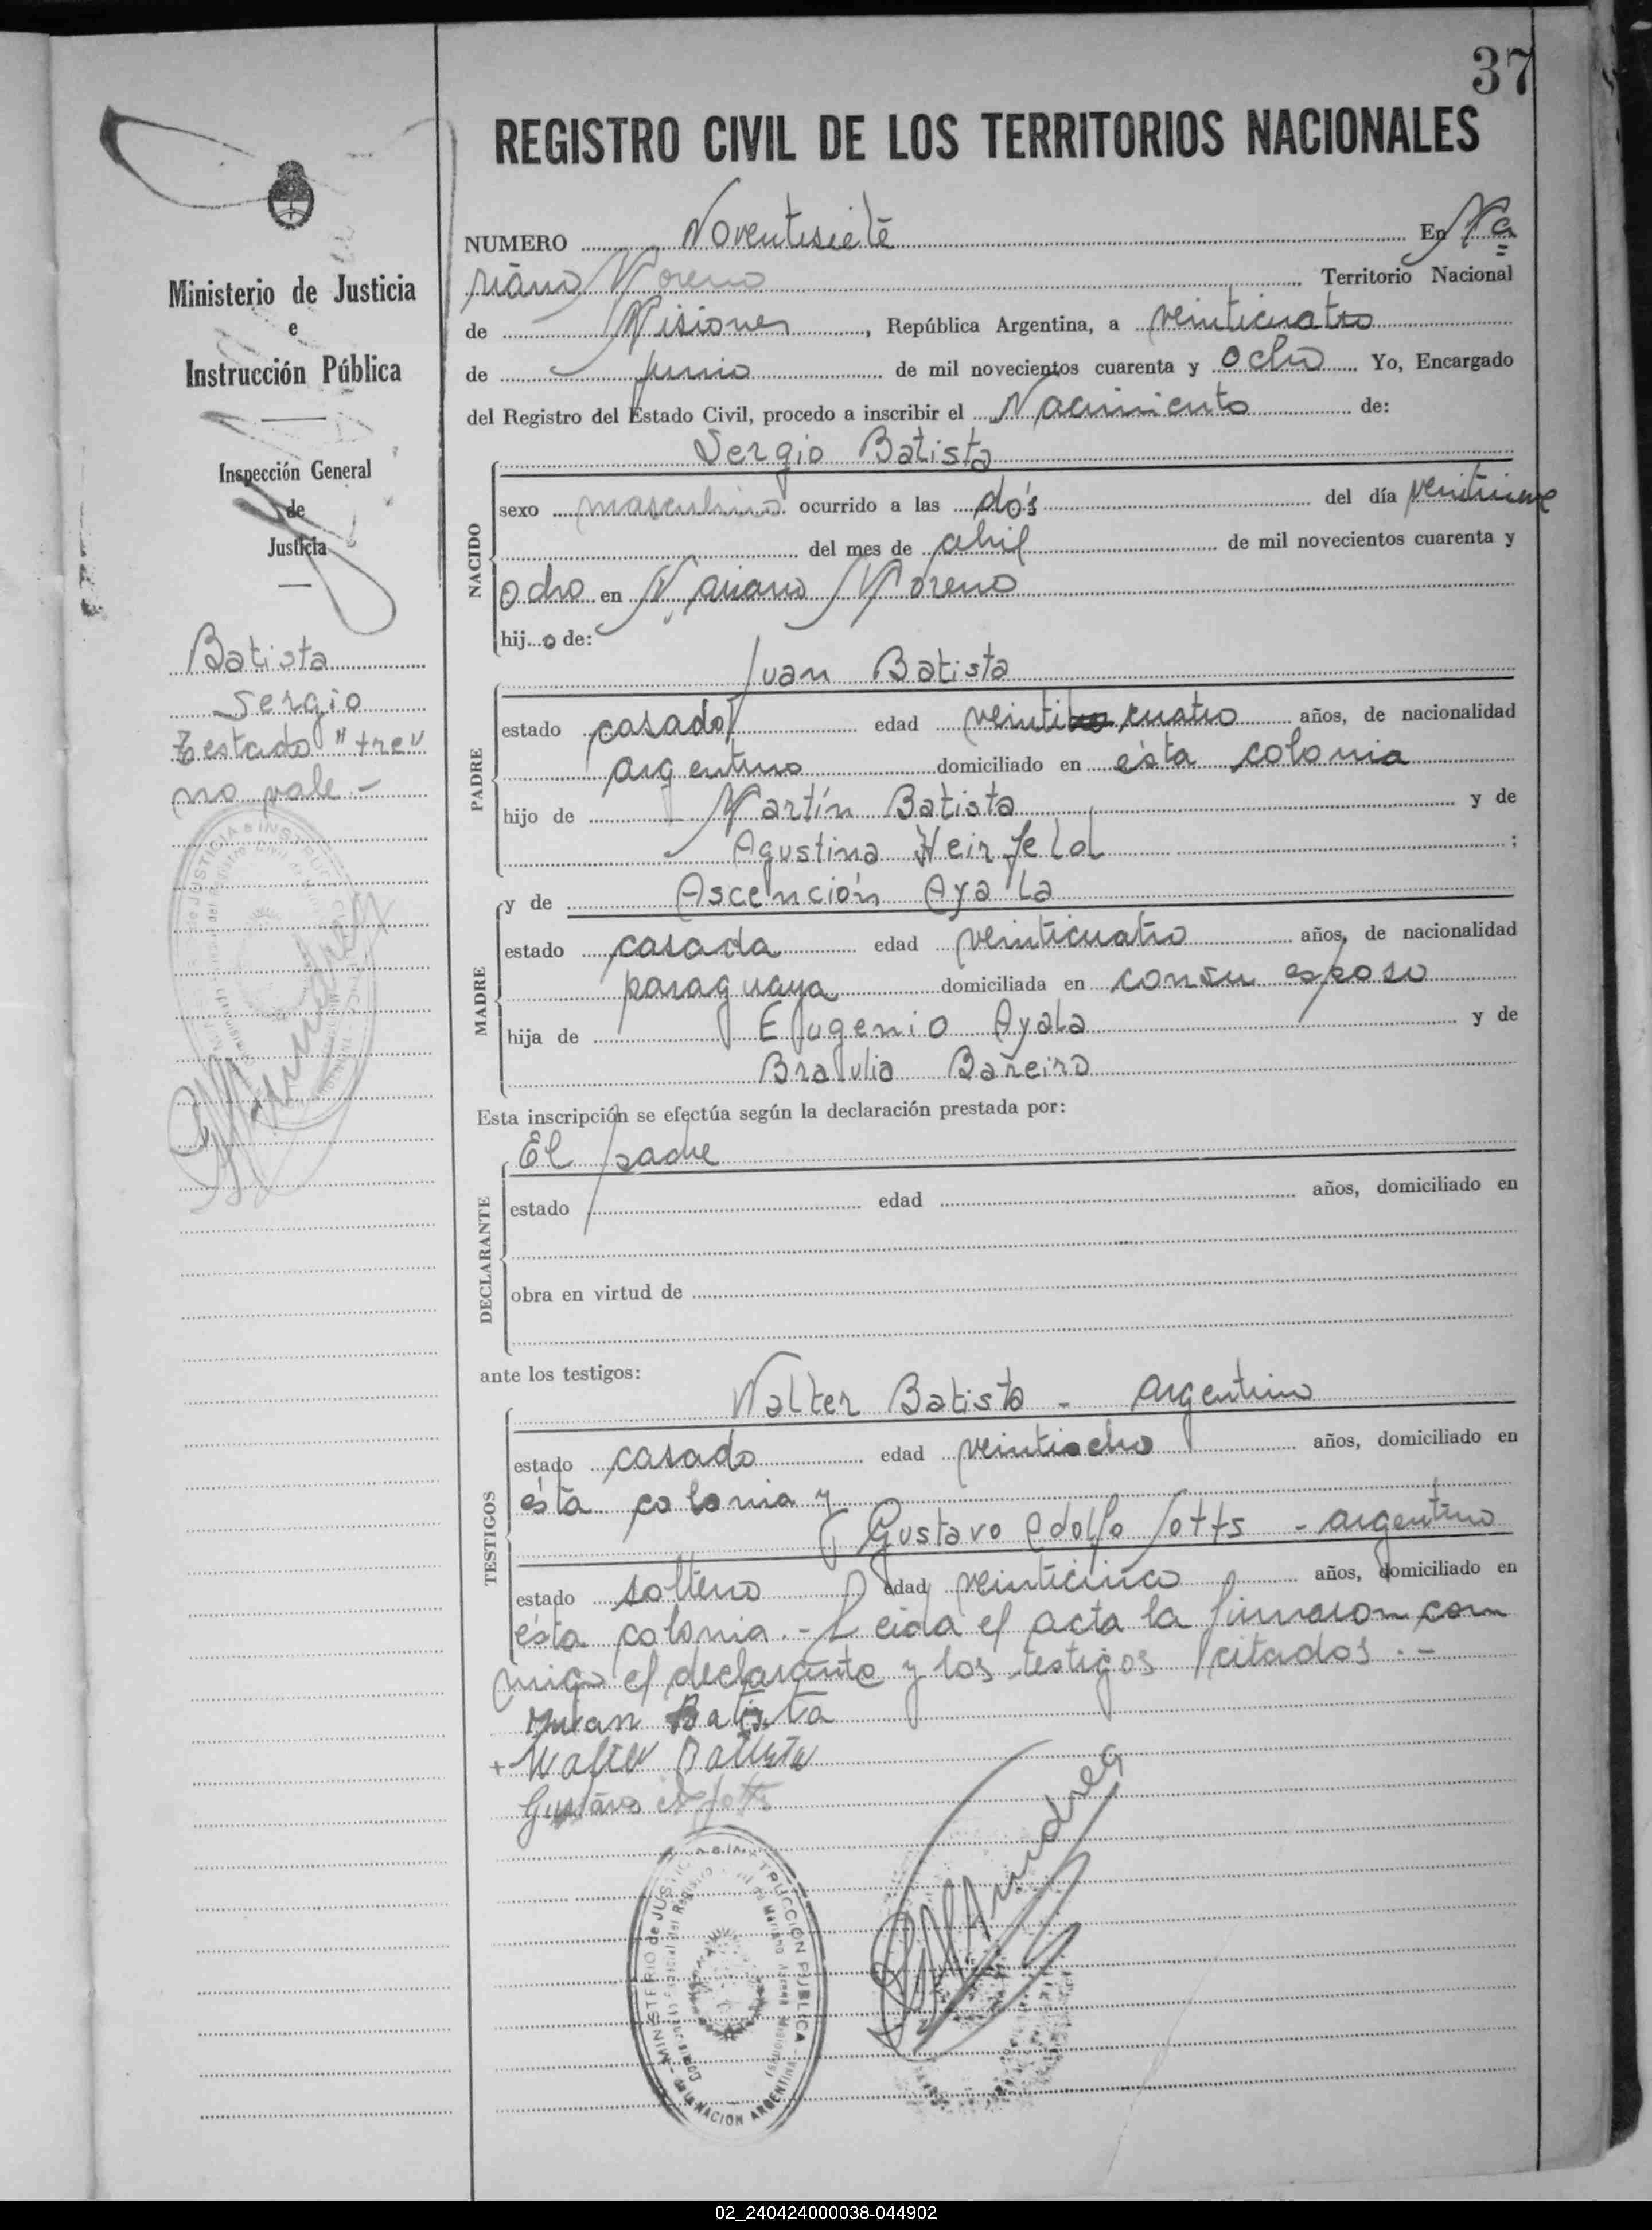 37
REGISTRO CIVIL DE LOS TERRITORIOS NACIONALES
NUMERO Noventisiete En Ma
riano Moreno Territorio Nacional
de Misiones, República Argentina, a veinticuatro
de junio de mil novecientos cuarenta y ocho Yo, Encargado
del Registro del Estado Civil, procedo a inscribir el Nacimiento de:
Sergio Batista
NACIDO
sexo masculino ocurrido a las dós del día
del mes de abril de mil novecientos cuarenta y
ocho en Mariano Moreno
hijo de:
Juan Batista
PADRE
estado casado edad veinti cuatro años, de nacionalidad
argentino domiciliado en ésta colonia
hijo de Martín Batista y de
Agustina Heirfeld ;
y de Ascención Ayala
MADRE
estado casada edad veinticuatro años, de nacionalidad
paraguaya domiciliada en con su esposo
hija de Eugenio Ayala y de
Braulia Bareiro
Esta inscripción se efectúa según la declaración prestada por:
El padre
DECLARANTE
estado edad años, domiciliado en
obra en virtud de
ante los testigos:
Walter Batista - argentino
TESTIGOS
estado casado edad veintiocho años, domiciliado en
ésta colonia y
Gustavo Adolfo Fotts - argentino
estado soltero edad veinticinco años, domiciliado en
ésta colonia.- Leida el acta la firmaron con
migo el declarante y los testigos citados.-
Juan Batista
Walter Batista
Gustavo
MINISTERIO de JUSTICIA e INSTRUCCIÓN PÚBLICA
de la NACION ARGENTINA
Ministerio de Justicia
e
Instrucción Pública
Inspección General
de
Justicia
Batista
Sergio
Testado "tre"
no vale.-
02_240424000038-044902